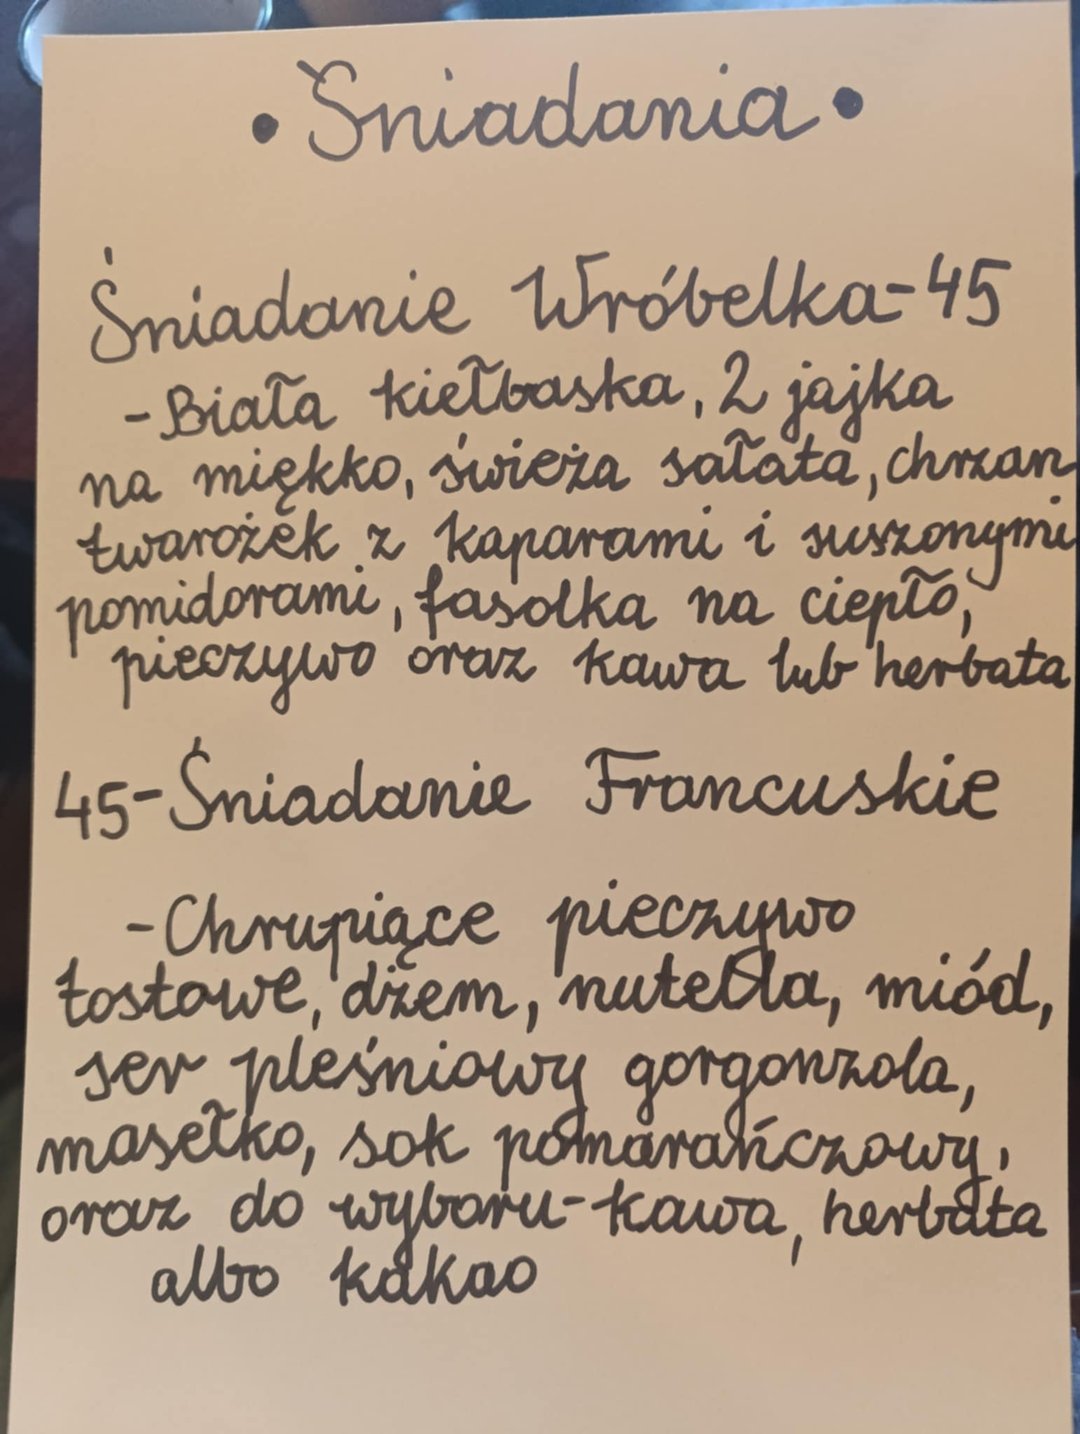 • Śniadania •
Śniadanie Wróbelka-45
-Biała kiełbaska, 2 jajka
na miękko, świeża sałata, chrzan
twarożek z kaparami i suszonymi
pomidorami, fasolka na ciepło,
pieczywo oraz kawa lub herbata
45-Śniadanie Francuskie
-Chrupiące pieczywo
tostowe, dżem, nutella, miód,
ser pleśniowy gorgonzola,
masełko, sok pomarańczowy,
oraz do wyboru-kawa, herbata
albo kakao